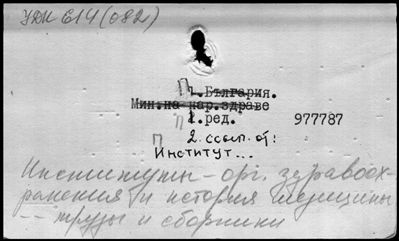 УДК 614(082)
П 1. България.
Мин. на нар. здраве
П 1. ред. 977787
П 2. ссыл. от:
Институт...
Институты - орг. здравоох-
ранения и история медицины
- труды и сборники